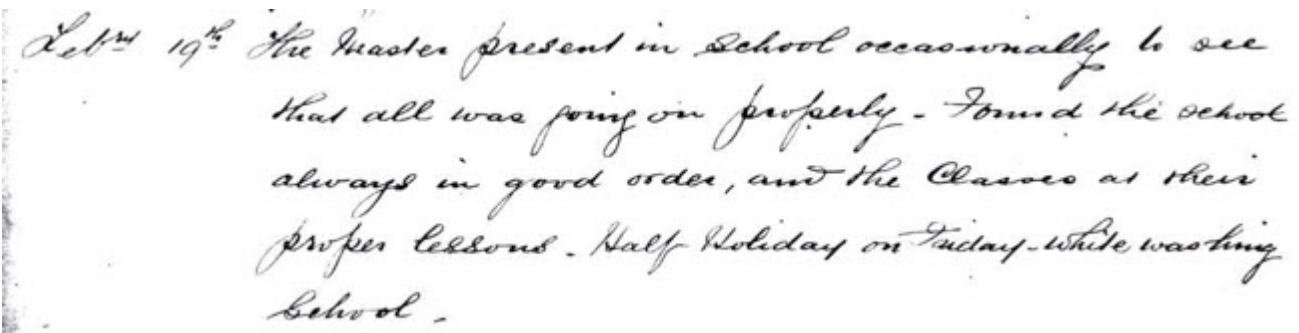 Febry 19th The Master present in School occasionally to see
that all was going on properly - Found the school
always in good order, and the Classes at their
proper lessons. Half Holiday on Friday - white washing
School.